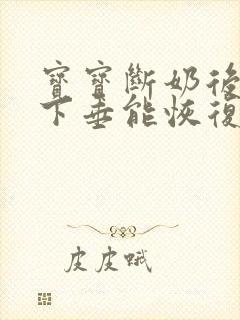 寶寶斷奶後
下垂能恢復
皮皮哦